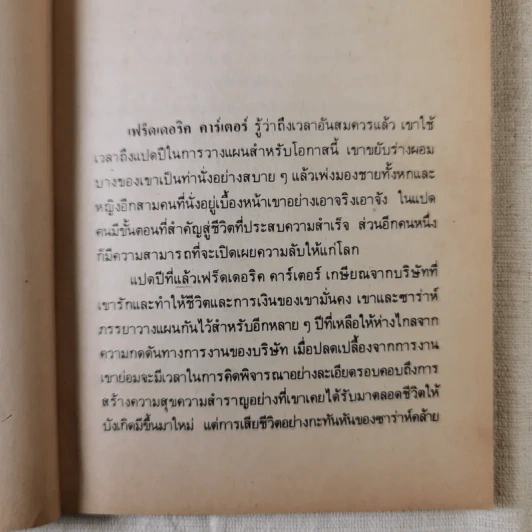 เฟร็ดเดอริค คาร์เตอร์ รู้ว่าถึงเวลาอันสมควรแล้ว เขาใช้
เวลาถึงแปดปีในการวางแผนสำหรับโอกาสนี้ เขาขยับร่างผอม
บางของเขาเป็นท่านั่งอย่างสบาย ๆ แล้วเพ่งมองชายทั้งหกและ
หญิงอีกสามคนที่นั่งอยู่เบื้องหน้าเขาอย่างเอาจริงเอาจัง ในแปด
คนมีขั้นตอนที่สำคัญสู่ชีวิตที่ประสบความสำเร็จ ส่วนอีกคนหนึ่ง
ก็มีความสามารถที่จะเปิดเผยความลับให้แก่โลก
แปดปีที่แล้วเฟร็ดเดอริค คาร์เตอร์ เกษียณจากบริษัทที่
เขารักและทำให้ชีวิตและการเงินของเขามั่นคง เขาและซาร่าห์
ภรรยาวางแผนกันไว้สำหรับอีกหลาย ๆ ปีที่เหลือให้ห่างไกลจาก
ความกดดันทางการงานของบริษัท เมื่อปลดเปลื้องจากการงาน
เขาย่อมจะมีเวลาในการคิดพิจารณาอย่างละเอียดรอบคอบถึงการ
สร้างความสุขความสำราญอย่างที่เขาเคยได้รับมาตลอดชีวิตให้
บังเกิดมีขึ้นมาใหม่ แต่การเสียชีวิตอย่างกะทันหันของซาร่าห์คล้าย